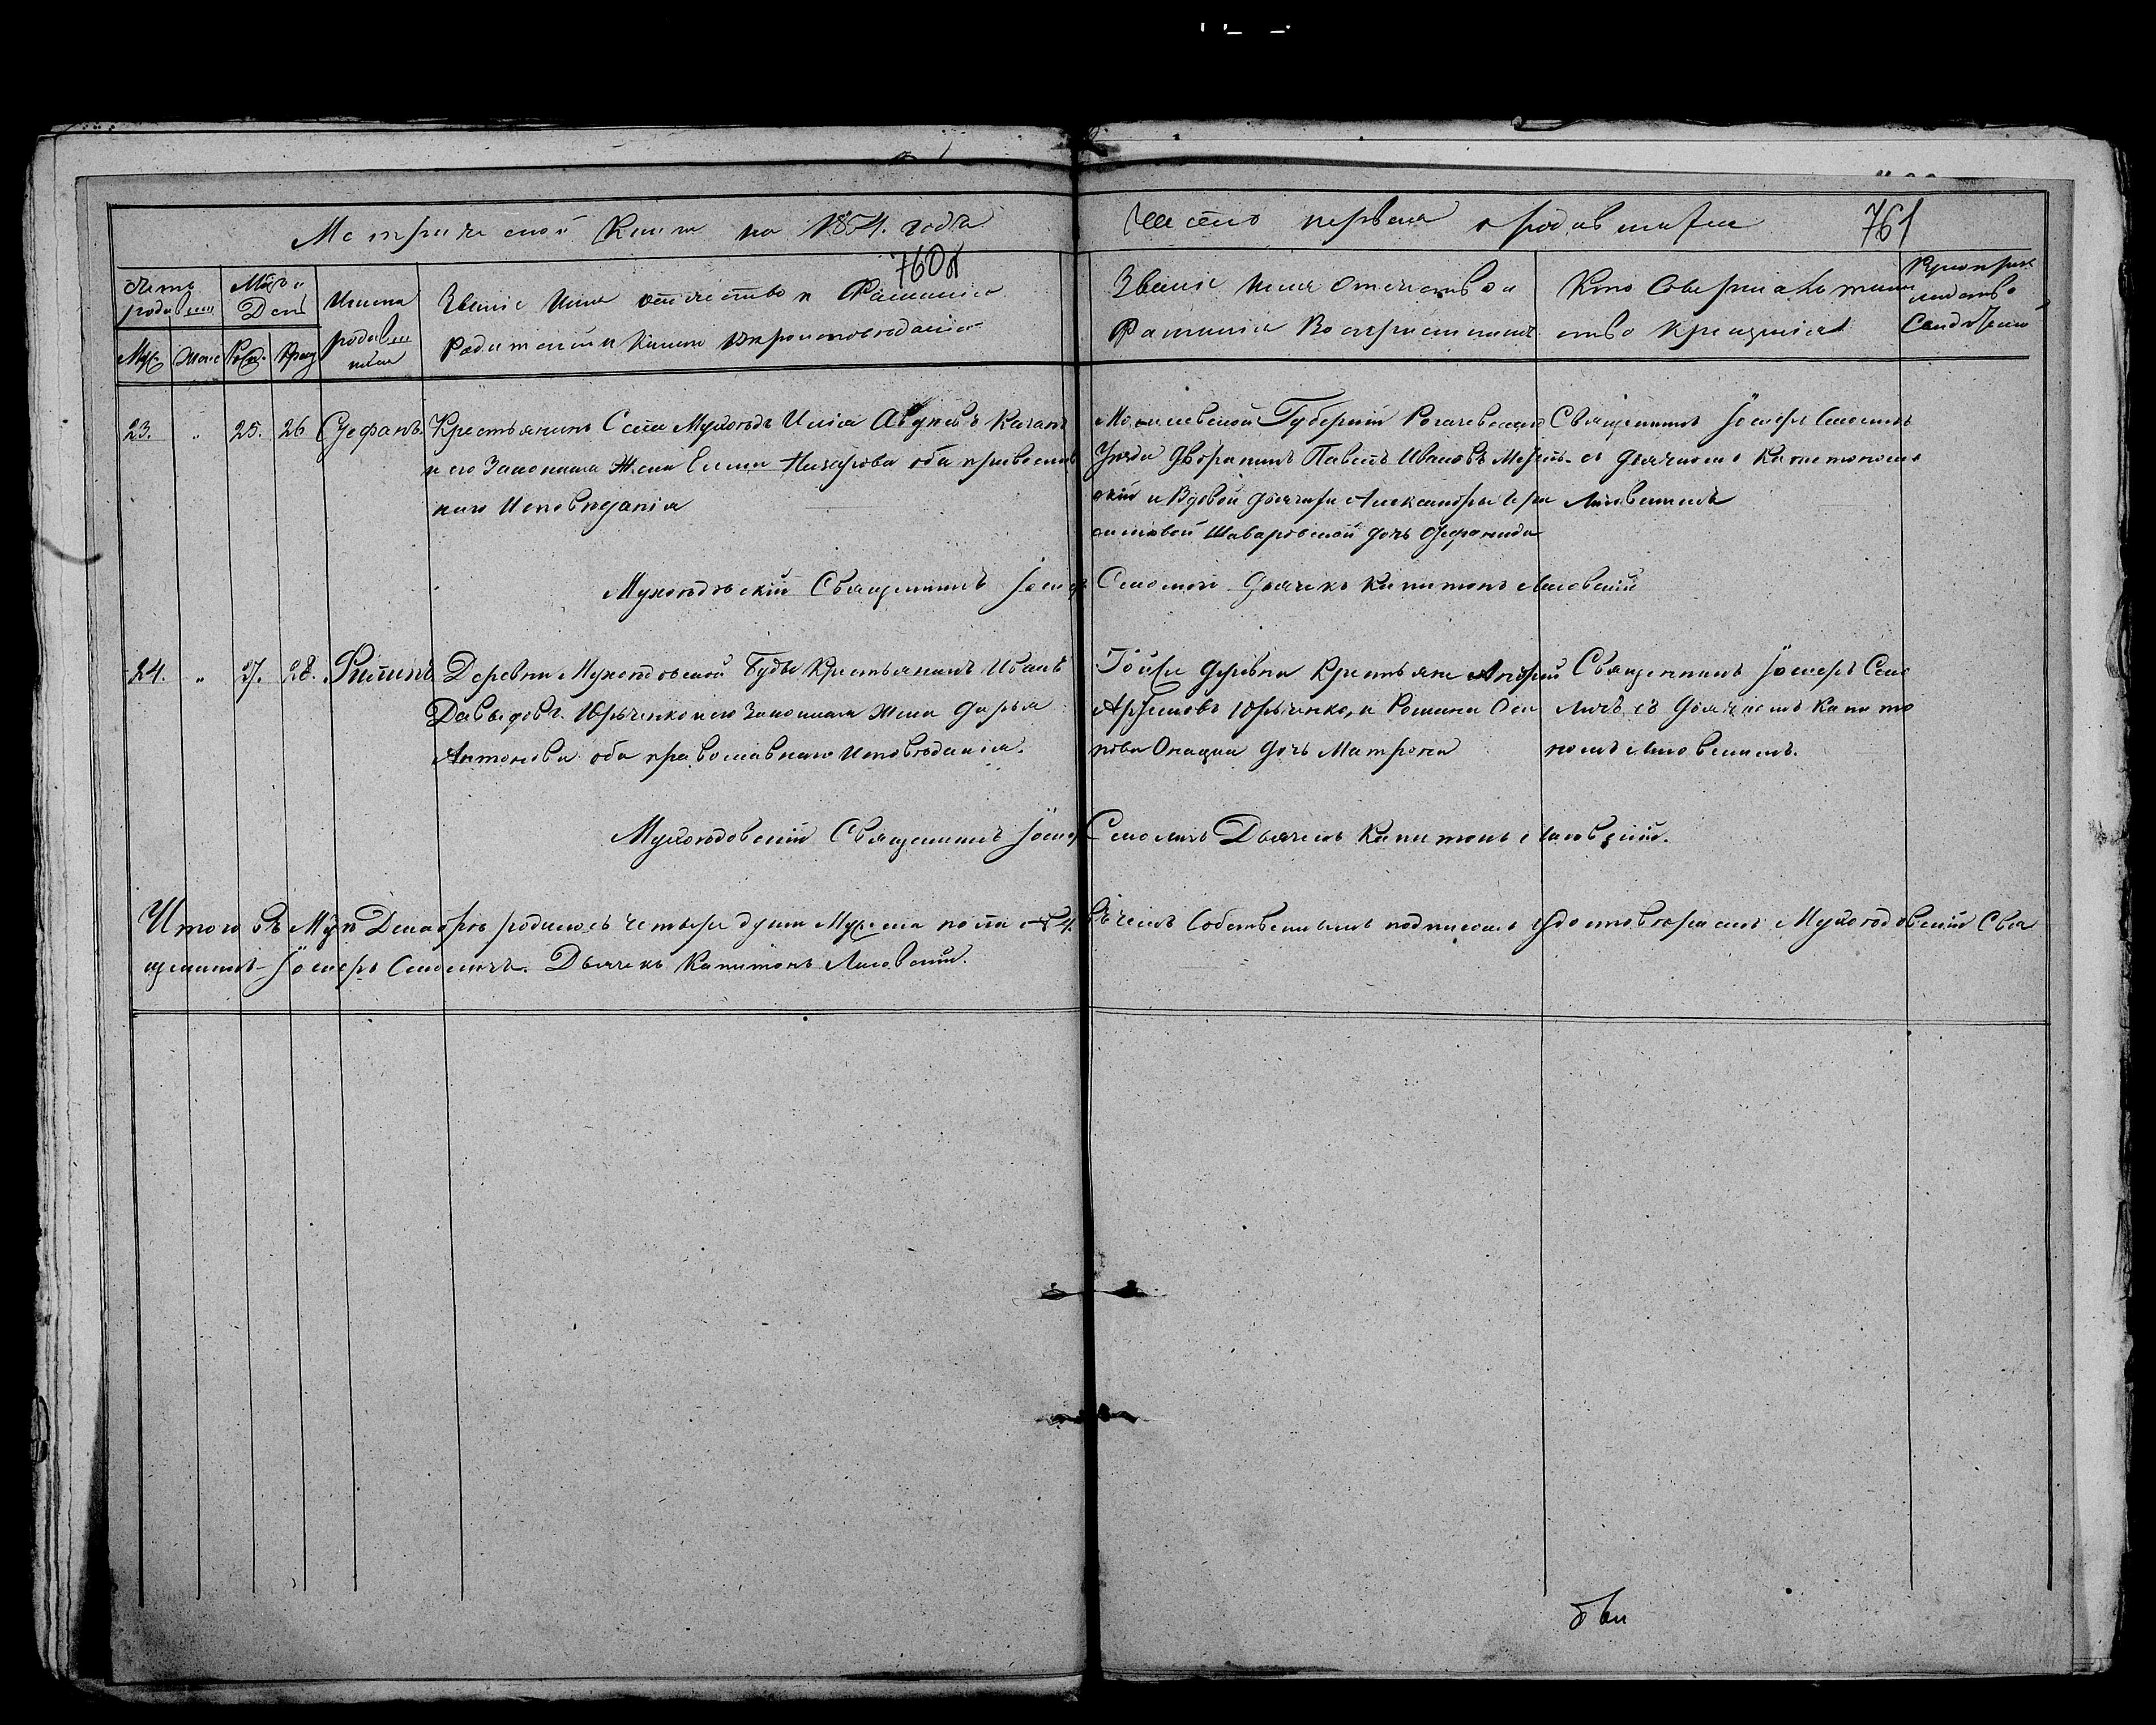 Метрической Книги на 1854. года
760об
Часть первая о родившихся
761
Счетъ родивш
Мцъ и День
Муж. Женс Рожд. Крещ
Имена родивш ихся
Званіе Имя отчество и Фамилія
Родителей и какого вѣроисповѣданія
Званіе Имя Отечество и
Фамилія Воспріемниковъ
Кто Совершалъ таин
ство крещенія
23. " 25. 26 Стефанъ.
Крестьянинъ Села Мухоѣдъ Илія Авдѣевъ Качанъ
и его Законная Жена Елена Назарова оба православ
наго Исповѣданія
Могилевской Губерніи Рогачевскаго
Уѣзда Дворянинъ Павелъ Ивановъ
и Вдовой Дьячихи Александры
дочь
Священникъ Іосифъ Смоличъ
съ Дьячкомъ Капитономъ
Лисовскимъ
Мухоѣдовскій Священникъ Іосифъ Смоличъ Дьячекъ Капитонъ Лисовскій
24. " 27. 28. Филипъ
Деревни Мухоѣдовской Буды Крестьянинъ Иванъ
Давыдовъ Юрченко и его Законная Жена Дарья
Антонова оба православнаго Исповѣданія.
Тойже Деревни Крестьяне Андрей
Юрченко, и Романа
Дочь Матрона
Священникъ Іосифъ Смо
личъ съ Дьячкомъ Капито
номъ Лисовскимъ.
Мухоѣдовскій Священникъ Іосифъ Смоличъ Дьячекъ Капитонъ Лисовскій.
Итого въ Мцѣ Декабрѣ родилось четыре души Мужеска пола 4. въ чемъ Собственнымъ подписомъ удостовѣряемъ Мухоѣдовскій Свя
щенникъ Іосифъ Смоличъ. Дьячекъ Капитонъ Лисовскій.